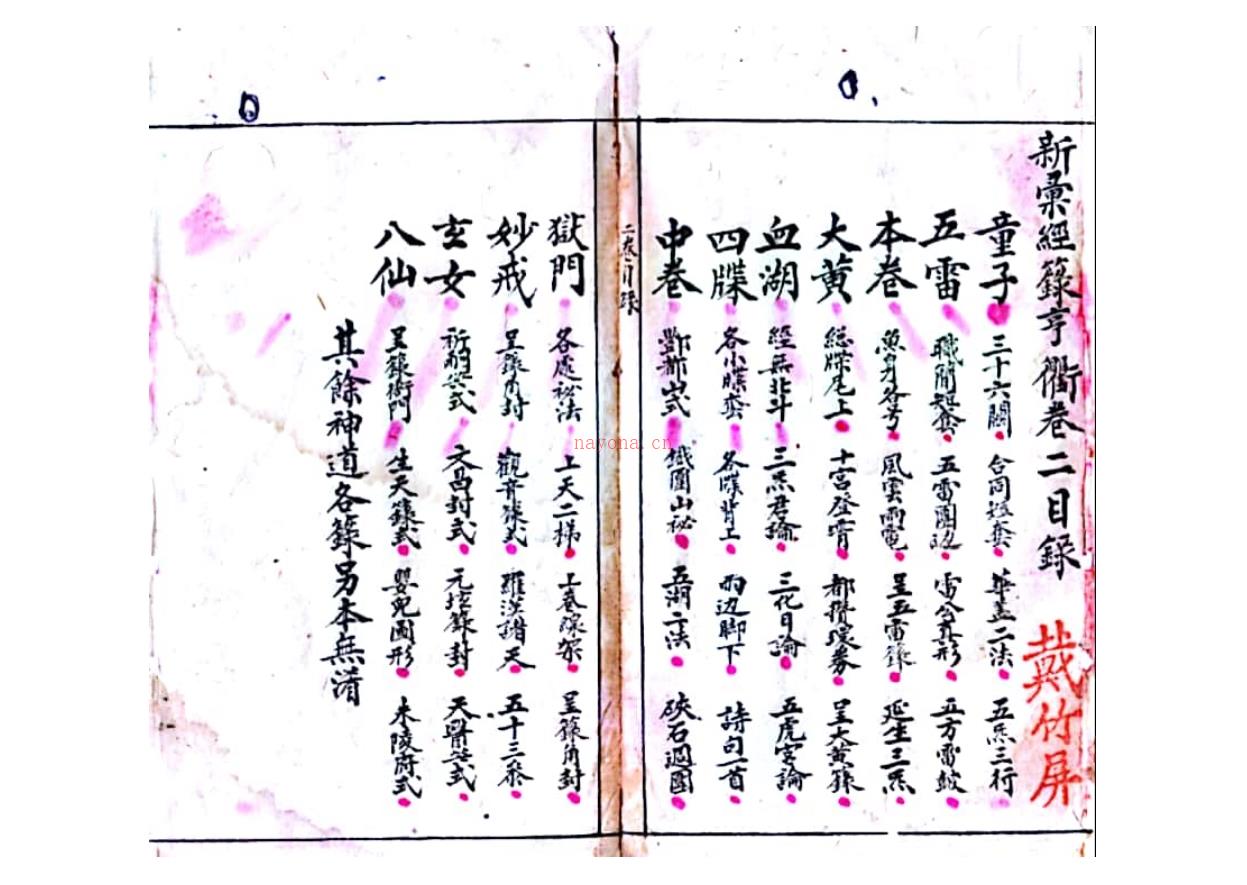 新彙經籙亨衢卷二目錄
戴竹屏
童子 三十六關 合同短套 華盖二法 五炁三行
五雷 職關短套 五雷圍边 雷公真形 五方雷皷
本卷 魚身各号 風雲雨電 呈五雷籙 延生三炁
大黄 総牒尾上 十宮登霄 都攢環券 呈大黄籙
血湖 經無北斗 三炁君論 三化日論 五虎宮論
四牒 各小牒套 各牒背上 兩边脚下 詩句一首
中卷 酆都山式 鐵圍山秘 五湖二法 硤石週圍
二卷目錄
獄門 各處秘法 上天二梯 上卷 呈籙角封
妙戒 呈籙角封 觀音籙式 羅漢諸天 五十三叅
玄女 祈嗣 式 文昌封式 元 籙封 天醫 式
八仙 呈籙衙門 生天籙式 嬰兒圖形 木陵府式
其餘神道各籙另本無淆
nayona.cn